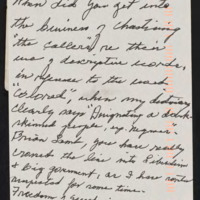 When did you get into
the business of chastising
"the callers", re their
use of descriptive words,
in reference to the word
"colored", when my dictionary
clearly says "Designating a dark
skinned people, eg negroes".
Brian Lamb, you have really
crossed the line into Liberalism
& big government, as I have
suspected for some time.
Freedom